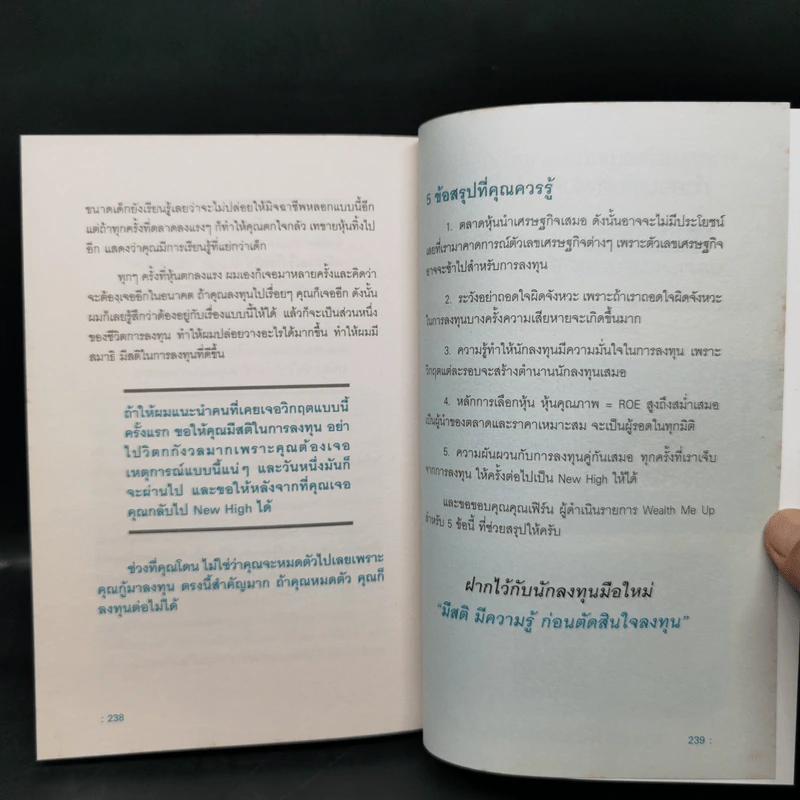 ขนาดเด็กยังเรียนรู้เลยว่าจะไม่ปล่อยให้มิจฉาชีพหลอกแบบนี้อีก
แต่ถ้าทุกครั้งที่ตลาดลงแรงๆ ก็ทำให้คุณตกใจกลัว เทขายหุ้นทิ้งไป
อีก แสดงว่าคุณมีการเรียนรู้ที่แย่กว่าเด็ก
ทุกๆ ครั้งที่หุ้นตกลงแรง ผมเองก็เจอมาหลายครั้งและคิดว่า
จะต้องเจออีกในอนาคต ถ้าคุณลงทุนไปเรื่อยๆ คุณก็เจออีก ดังนั้น
ผมก็เลยรู้สึกว่าต้องอยู่กับเรื่องแบบนี้ให้ได้ แล้วก็จะเป็นส่วนหนึ่ง
ของชีวิตการลงทุน ทำให้ผมปล่อยวางอะไรได้มากขึ้น ทำให้ผมมี
สมาธิ มีสติในการลงทุนที่ดีขึ้น
ถ้าให้ผมแนะนำคนที่เคยเจอวิกฤตแบบนี้
ครั้งแรก ขอให้คุณมีสติในการลงทุน อย่า
ไปวิตกกังวลมากเพราะคุณต้องเจอ
เหตุการณ์แบบนี้แน่ๆ และวันหนึ่งมันก็
จะผ่านไป และขอให้หลังจากที่คุณเจอ
คุณกลับไป New High ได้
ช่วงที่คุณโดน ไม่ใช่ว่าคุณจะหมดตัวไปเลยเพราะ
คุณกู้มาลงทุน ตรงนี้สำคัญมาก ถ้าคุณหมดตัว คุณก็
ลงทุนต่อไม่ได้
: 238
5 ข้อสรุปที่คุณควรรู้
1. ตลาดหุ้นนำเศรษฐกิจเสมอ ดังนั้นอาจจะไม่มีประโยชน์
เลยที่เรามาคาดการณ์ตัวเลขเศรษฐกิจต่างๆ เพราะตัวเลขเศรษฐกิจ
อาจจะช้าไปสำหรับการลงทุน
2. ระวังอย่าถอดใจผิดจังหวะ เพราะถ้าเราถอดใจผิดจังหวะ
ในการลงทุนบางครั้งความเสียหายจะเกิดขึ้นมาก
3. ความรู้ทำให้นักลงทุนมีความมั่นใจในการลงทุน เพราะ
วิกฤตแต่ละรอบจะสร้างตำนานนักลงทุนเสมอ
4. หลักการเลือกหุ้น หุ้นคุณภาพ = ROE สูงถึงสม่ำเสมอ
เป็นผู้นำของตลาดและราคาเหมาะสม จะเป็นผู้รอดในทุกมิติ
5. ความผันผวนกับการลงทุนคู่กันเสมอ ทุกครั้งที่เราเจ็บ
จากการลงทุน ให้ครั้งต่อไปเป็น New High ให้ได้
และขอขอบคุณคุณเฟิร์น ผู้ดำเนินรายการ Wealth Me Up
สำหรับ 5 ข้อนี้ ที่ช่วยสรุปให้ครับ
ฝากไว้กับนักลงทุนมือใหม่
“มีสติ มีความรู้ ก่อนตัดสินใจลงทุน”
239 :